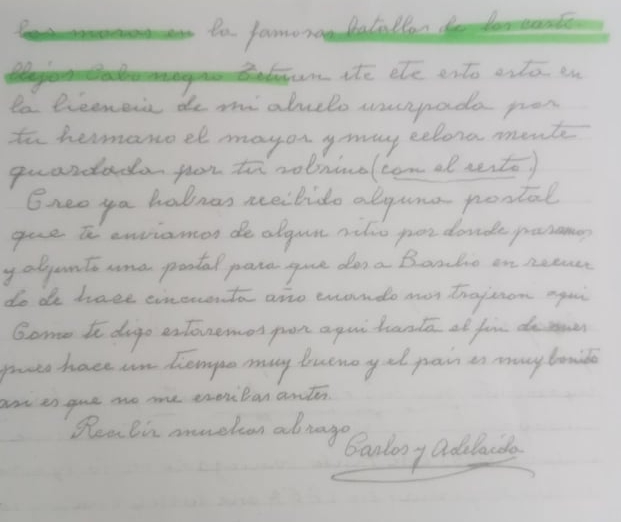 los moros en la famosas batallas de los casti-
llejos Cabo negro Betuan ete ete esto esta en
la licencia de mi abuelo usurpada por
tu hermano el mayor y muy celosa mente
guardada por tu sobrina (con el resto)
Creo ya habras recibido alguna postal
que te enviamos de algun sitio por donde pasamos
y adjunto una postal para que des a Basilio en recuer
do de hace cincuenta año cuando nos trajeron aqui
Como te digo estaremos por aqui hasta el fin de mes
pues hace un tiempo muy bueno y el pais es muy bonito
asi es que no me escribas antes.
Recibir muchos abrazo
Carlos y Adelaida